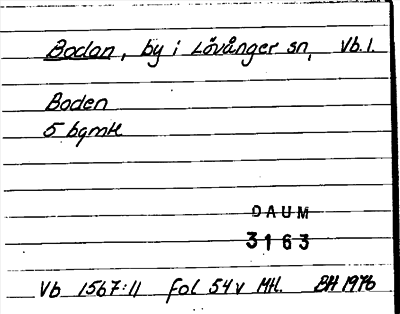 Bodan, by i Lövånger sn, Vb.l.
Boden
5 bgmH
DAUM
3163
Vb 1567:11 fol 54v MH. BH 1976